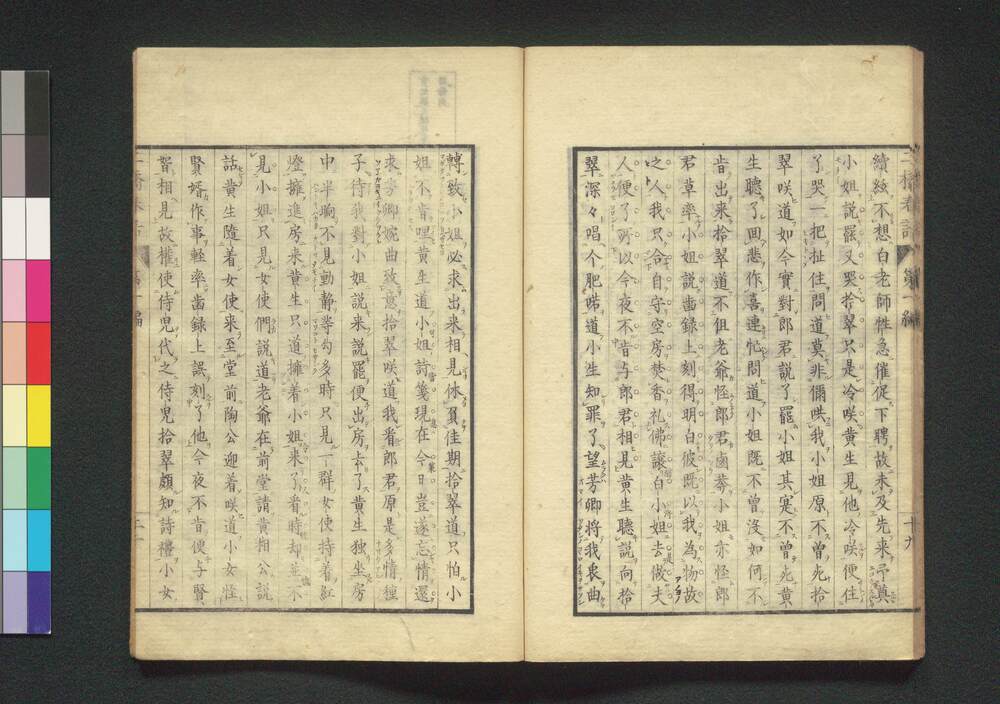 續絃不想白老師性急催促下聘故未及先来吊奠
小姐說罷又哭拾翠只是冷咲黄生見他冷咲便住
了哭一把扯住問道莫非儞哄我小姐原不曾死拾
翠咲道如今實對郎君說了罷小姐其寔不曾死黄
生聽了囬悲作喜連忙問道小姐既不曾没如何不
肯出来拾翠道不但老爺怪郎君鹵莽小姐亦怪郎
君草率小姐說齒録上刻得明白彼既以我為物故
之人我只合自守空房焚香礼佛讓白小姐去做夫
人便了所以今夜不肯与郎君相見黄生聽說向拾
翠深々唱个肥喏道小生知罪了望芳卿将我衷曲
轉致小姐必求出来相見休負佳期拾翠道只怕小
姐不肯哩黄生道小姐詩箋現在今日豈遂忘情還
求芳卿婉曲致意拾翠咲道我看郎君原是多情種
子待我對小姐說来說罷便出房去了黄生独坐房
中半晌不見動靜等勾多時只見一群女使持着紅
燈擁進房来黄生只道擁着小姐来了看時却並不
見小姐只見女使們說道老爺在前堂請黄相公說
話黄生隨着女使来至堂前陶公迎着咲道小女怪
賢婿作事軽率齒録上誤刻了他今夜不肯便与賢
婿相見故權使侍児代之侍児拾翠頗知詩禮小女
第一編
十九